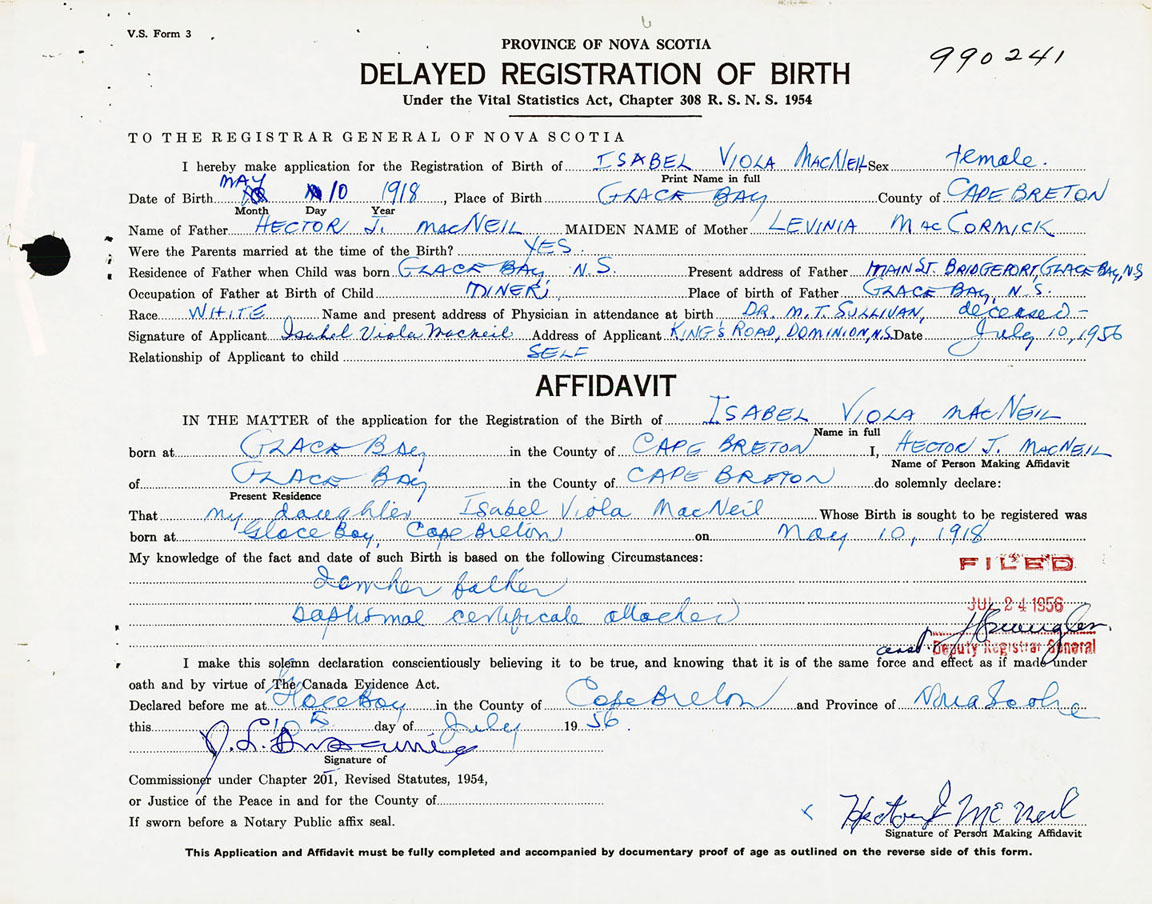 V.S. Form 3
PROVINCE OF NOVA SCOTIA
990241
DELAYED REGISTRATION OF BIRTH
Under the Vital Statistics Act, Chapter 308 R. S. N. S. 1954
TO THE REGISTRAR GENERAL OF NOVA SCOTIA
I hereby make application for the Registration of Birth of ISABEL VIOLA MACNEIL Sex female.
Print Name in full
Date of Birth MAY 10 1918, Place of Birth GLACE BAY County of CAPE BRETON
Month Day Year
Name of Father HECTOR J. MACNEIL MAIDEN NAME of Mother LEVINIA MACCORMICK
Were the Parents married at the time of the Birth? YES
Residence of Father when Child was born GLACE BAY N.S. Present address of Father MAIN ST. BRIDGEPORT, GLACE BAY, N.S
Occupation of Father at Birth of Child MINER Place of birth of Father GLACE BAY, N.S.
Race WHITE Name and present address of Physician in attendance at birth DR. M.T. SULLIVAN, deceased -
Signature of Applicant Isabel Viola Macneil Address of Applicant KING'S ROAD, DOMINION, N.S. Date July 10, 1956
Relationship of Applicant to child SELF
AFFIDAVIT
IN THE MATTER of the application for the Registration of the Birth of ISABEL VIOLA MACNEIL
Name in full
born at GLACE BAY in the County of CAPE BRETON I, HECTOR J. MACNEIL
Name of Person Making Affidavit
of GLACE BAY in the County of CAPE BRETON do solemnly declare:
Present Residence
That my daughter Isabel Viola MacNeil Whose Birth is sought to be registered was
born at Glace Bay, Cape Breton on May 10, 1918
My knowledge of the fact and date of such Birth is based on the following Circumstances:
I am her father
FILED
Baptismal certificate attached
JUL 24 1956
asst. Deputy Registrar General
I make this solemn declaration conscientiously believing it to be true, and knowing that it is of the same force and effect as if made under
oath and by virtue of The Canada Evidence Act.
Declared before me at Glace Bay in the County of Cape Breton and Province of Nova Scotia
this day of July 1956.
Signature of
Commissioner under Chapter 201, Revised Statutes, 1954,
or Justice of the Peace in and for the County of
If sworn before a Notary Public affix seal.
Hector J McNeil
Signature of Person Making Affidavit
This Application and Affidavit must be fully completed and accompanied by documentary proof of age as outlined on the reverse side of this form.